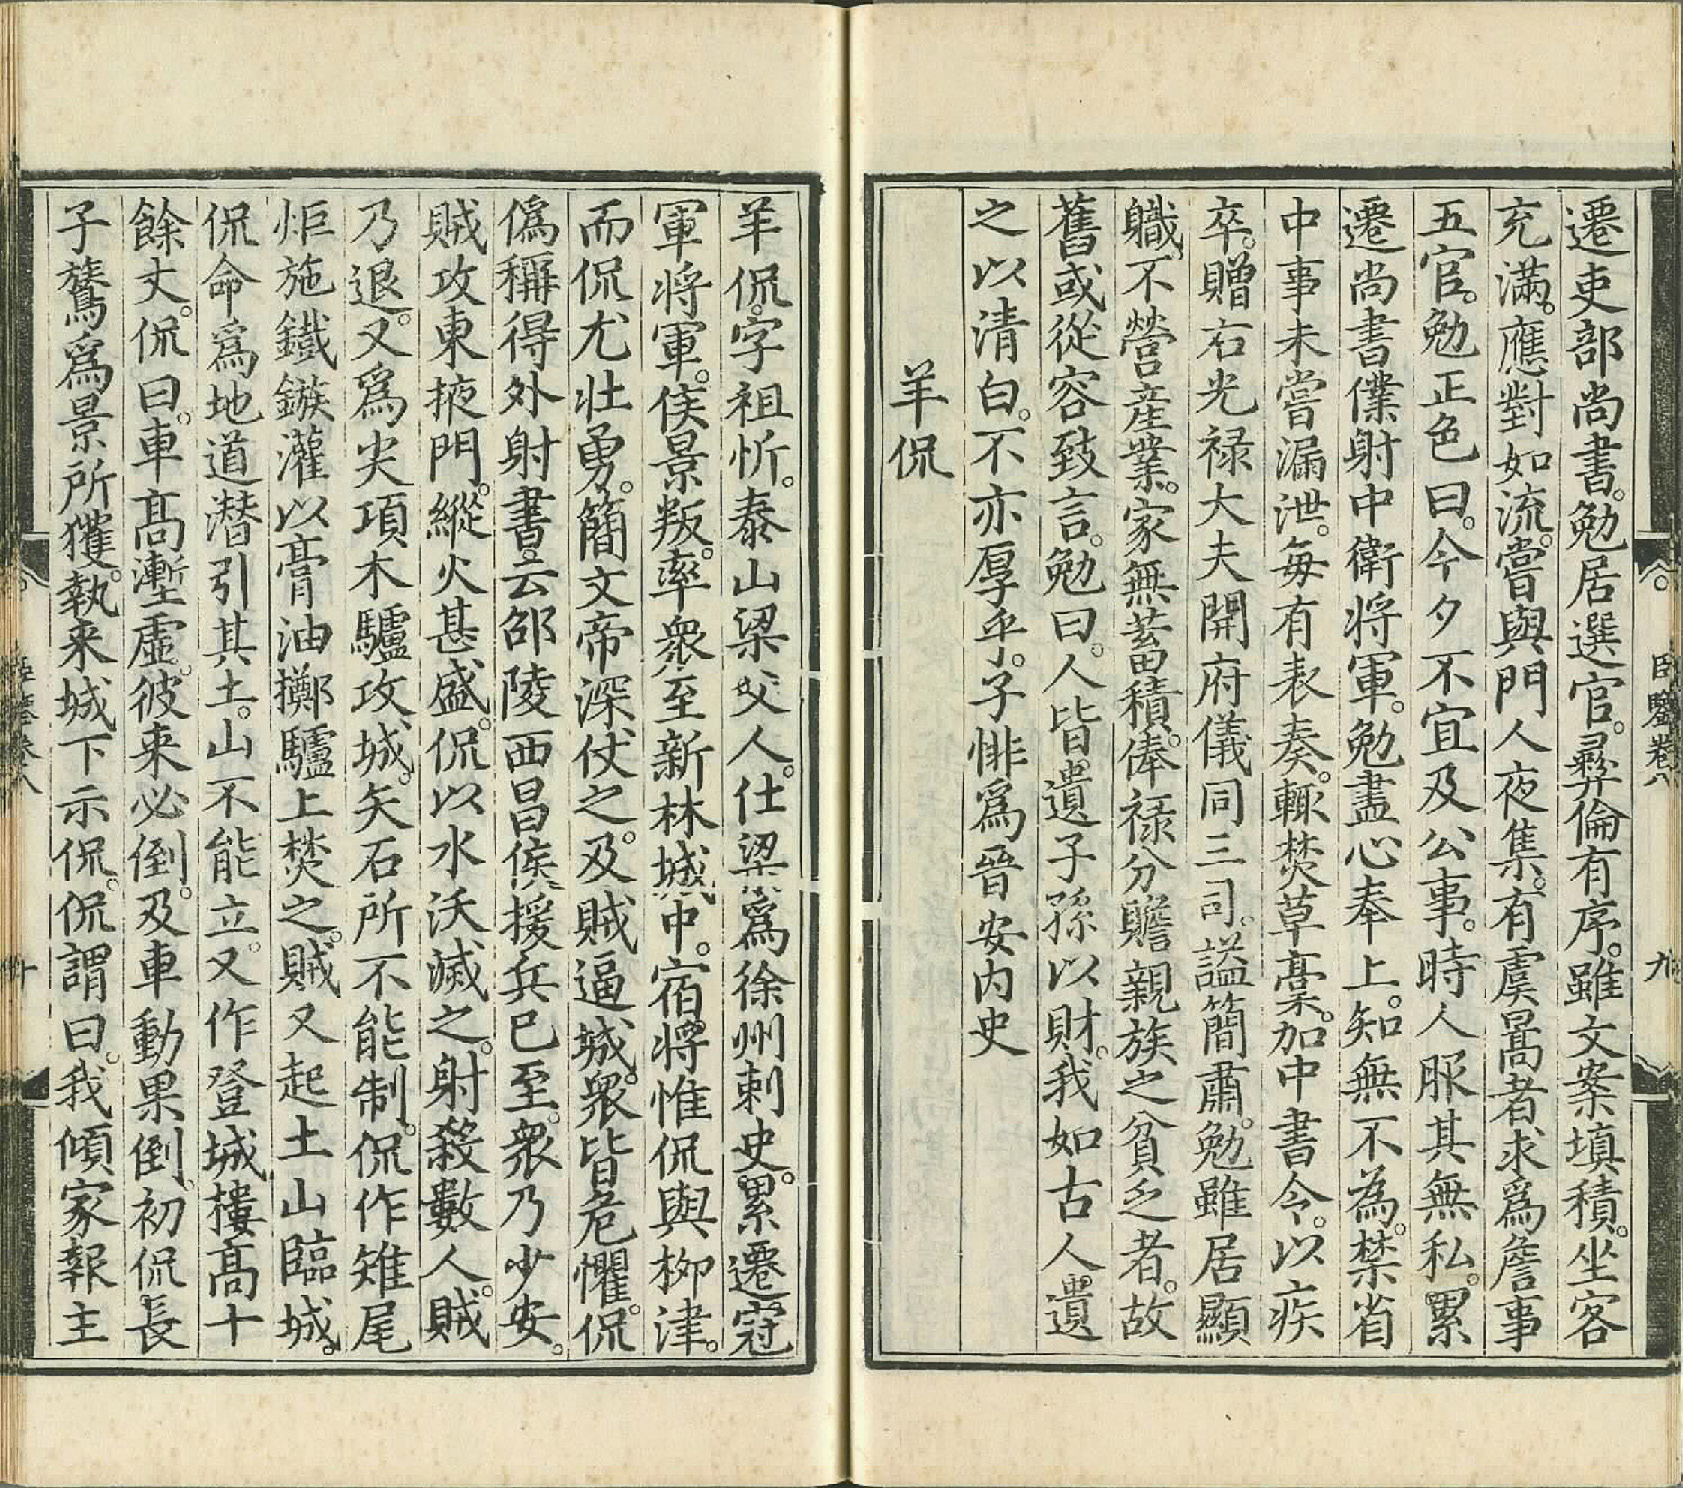 遷吏部尚書。勉居選官。彛倫有序。雖文案填積。坐客
充滿。應對如流。嘗與門人夜集。有虞暠者求爲詹事
五官。勉正色曰。今夕不宜及公事。時人服其無私。累
遷尚書僕射中衛將軍。勉盡心奉上。知無不為。禁省
中事未嘗漏泄。每有表奏。輙焚草藁。加中書令。以疾
卒。贈右光禄大夫開府儀同三司。謚簡肅。勉雖居顯
職。不營産業。家無蓄積。俸禄分贍親族之貧乏者。故
舊或從容致言。勉曰。人皆遺子孫以財。我如古人遺
之以清白。不亦厚乎。子悱爲晉安内史
羊侃
臣鑒卷八
九
羊侃。字祖忻。泰山梁父人。仕梁爲徐州刺史。累遷冠
軍將軍。侯景叛。率衆至新林城中。宿將惟侃與柳津。
而侃尤壯勇。簡文帝深仗之。及賊逼城。衆皆危懼。侃
僞稱得外射書。云邵陵西昌侯援兵已至。衆乃少安。
賊攻東掖門。縱火甚盛。侃以水沃滅之。射殺數人。賊
乃退。又爲尖項木驢攻城。矢石所不能制。侃作雉尾
炬施鐵鏃灌以膏油擲驢上焚之。賊又起土山臨城。
侃命爲地道潜引其土。山不能立。又作登城樓高十
餘丈。侃曰。車高塹虚。彼来必倒。及車動果倒。初侃長
子鷟爲景所獲。執来城下示侃。侃謂曰。我傾家報主
卷八
十